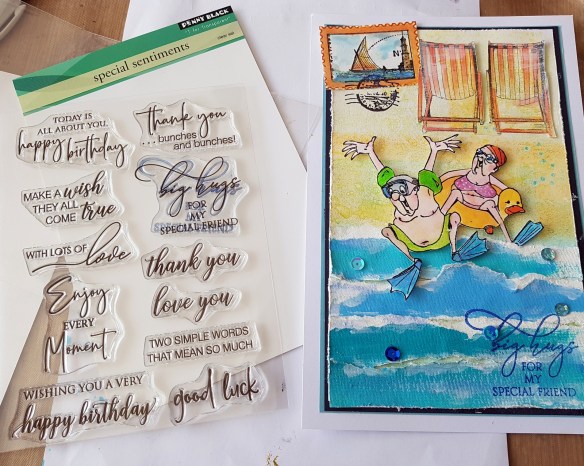 PENNY BLACK
special sentiments
TODAY IS
ALL ABOUT YOU.
happy birthday
thank you
... bunches
and bunches!
MAKE A wish
THEY ALL
COME true
big hugs
FOR
MY
SPECIAL FRIEND
WITH LOTS OF love
thank you
Enjoy
EVERY
Moment
love you
TWO SIMPLE WORDS
THAT MEAN SO MUCH
WISHING YOU A VERY
happy birthday
good luck
big hugs
FOR
MY
SPECIAL FRIEND